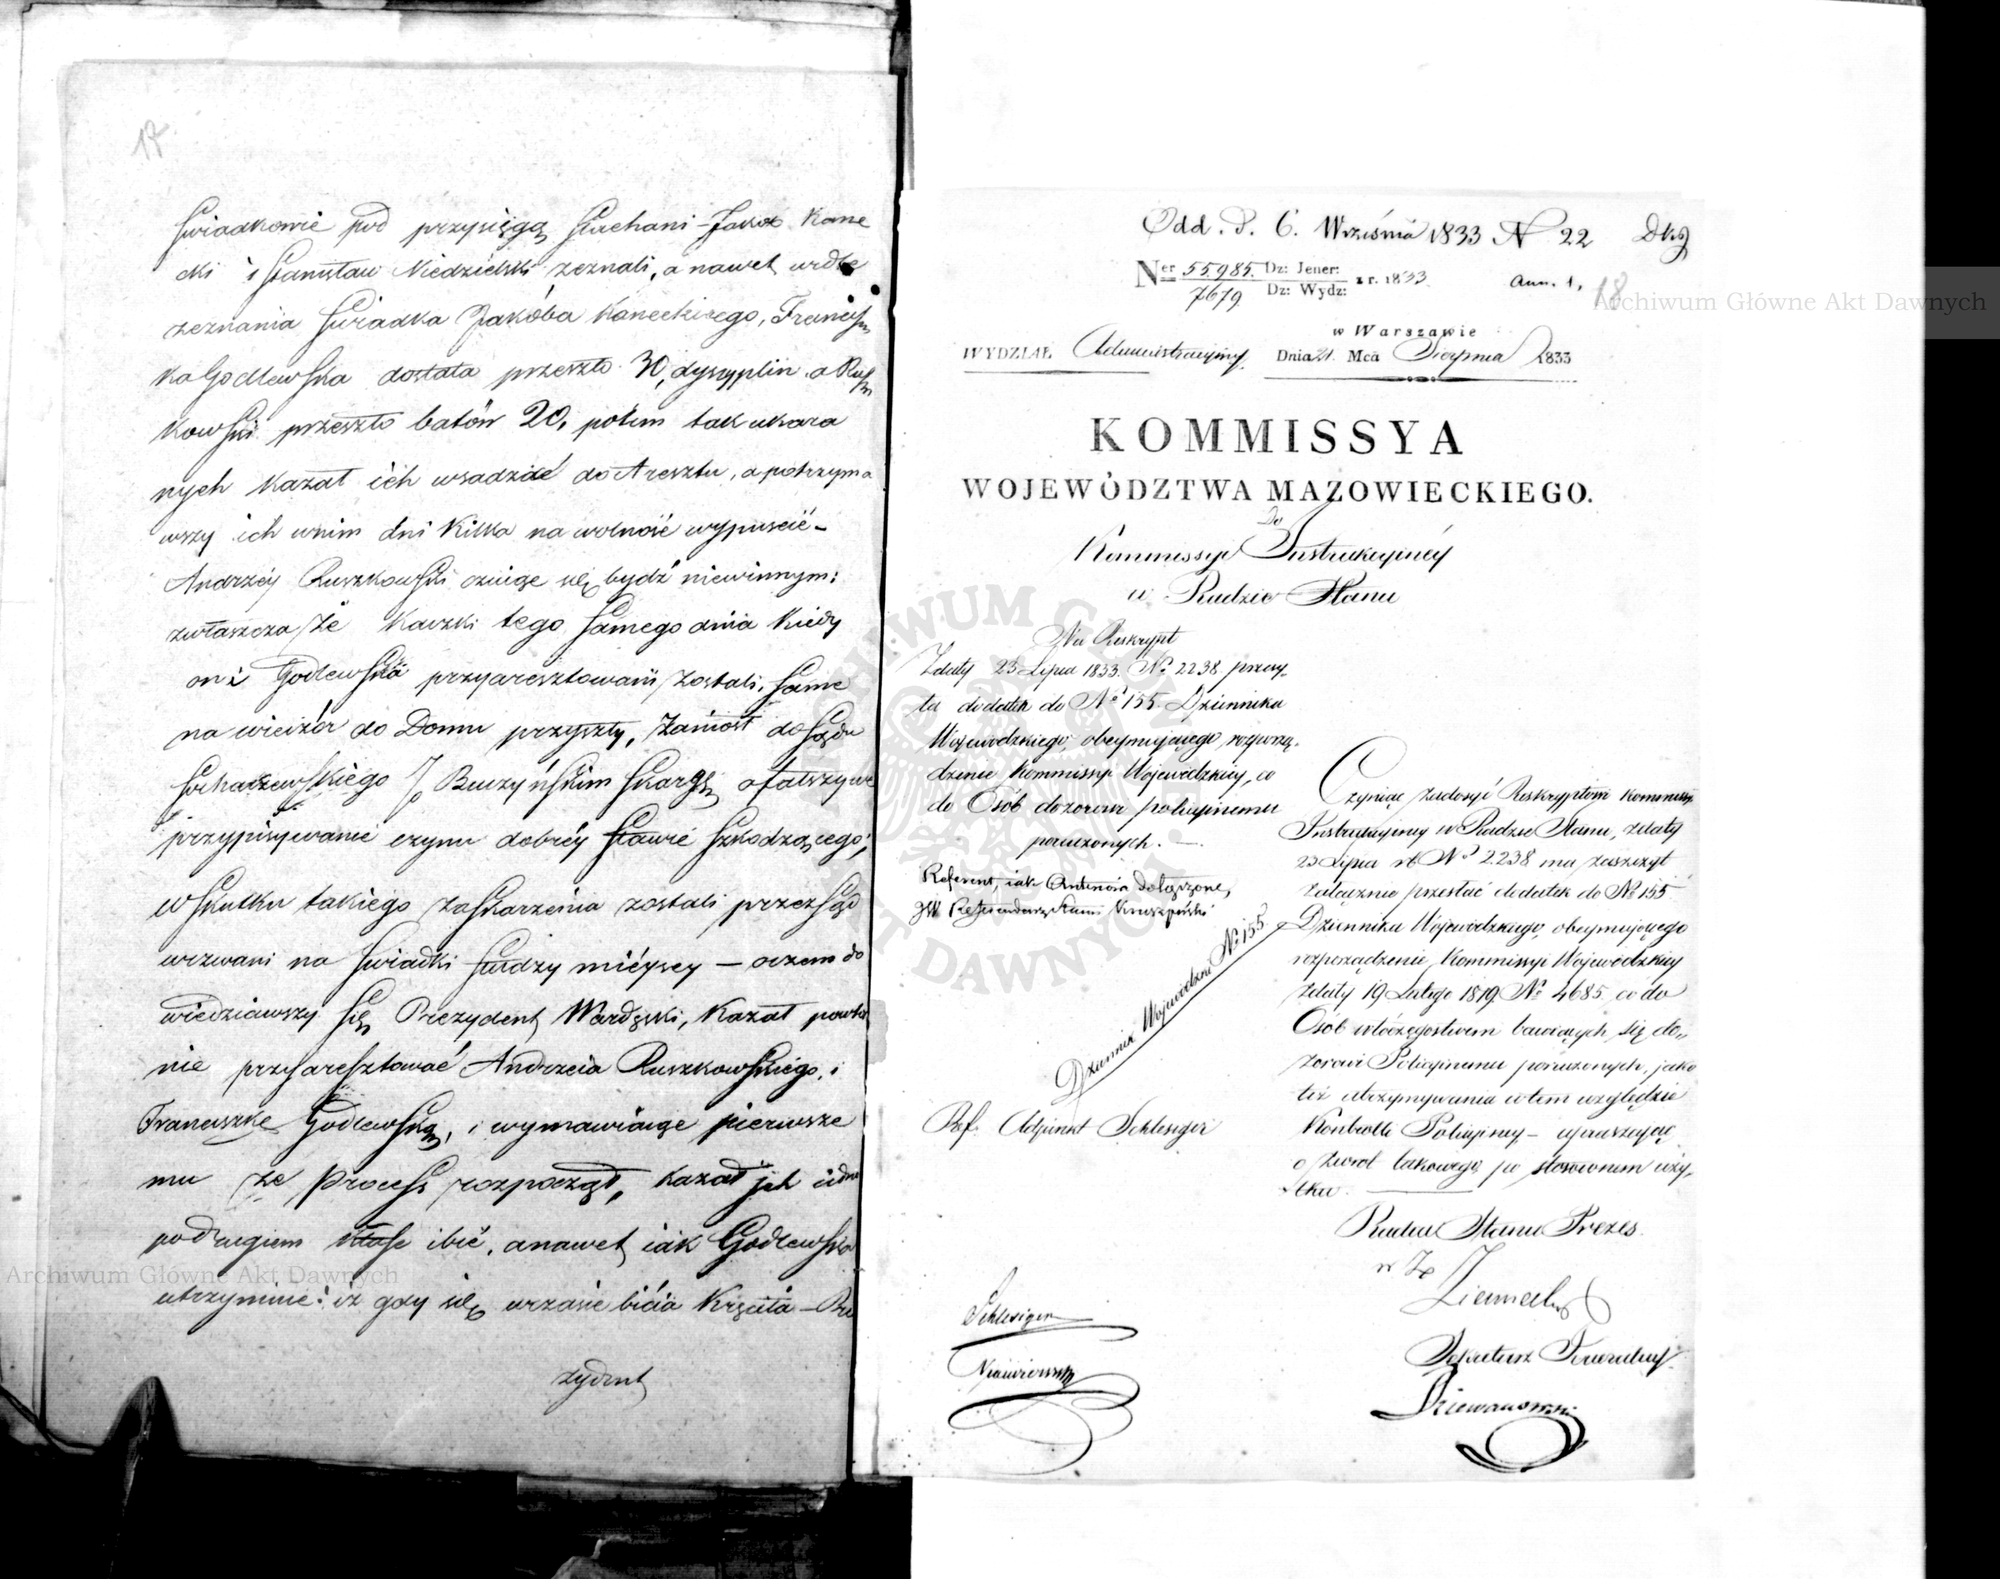 17
świadkowie pod przysięgą słuchani – Jakób Kane
cki i Stanisław Niedzielski zeznali, a nawet wedle
zeznania świadka Jakóba Kaneckiego, Francisz
ka Godlewska dostała przeszło 30, dyscyplin a Rusz
kowski przeszło batów 20, potem tak ukara
nych kazał ich wsadzić do Aresztu, a potrzyma
wszy ich w nim dni kilka na wolność wypuścić –
Andrzéy Ruszkowski czując się bydź niewinnym:
zwłaszcza że kaczki tego samego dnia kiedy
on i Godlewska przyaresztowani zostali, same
na wieczór do Domu przyszły, zaniosł do Sądu
Sochaczewskiego Buczyńskim skargę o fałszywe
przypisywanie czynu dobréy sławie szkodzącego;
w skutku takiego zaskarzenia zostali przez Sąd
wezwani na świadki Sudzy miéyscy – oczem do
wiedziawszy się Prezydent Wardęski, kazał powtór
nie przyaresztować Andrzeia Ruszkowskiego, i
Franciszkę Godlewską, i wymawiaiąc pierwsze
mu że Process rozpoczął, kazał ich iedno
po drugiem kłaść i bić, a nawet iak Godlewska
utrzymuie: iż gdy się w czasie bicia kręciła – Pre
zydent
Odd. P. 6. Września 1833 N 22
Ner 55.985. Dz: Jener: z r. 1833.
7679 Dz: Wydz:
Ann. 1, 18
w Warszawie
WYDZIAŁ Administracyiny. Dnia 21. Mca Sierpnia 1833
KOMMISSYA
WOJEWÓDZTWA MAZOWIECKIEGO.
Do
Kommissyi Instrukcyinéy
w Radzie Stanu
Na Reskrypt
Z daty 23 Lipca 1833. No 2238 przesy-
ła dodatek do No 155 Dziennika
Wojewodzkiego, obeymującego rozporzą-
dzenie Kommissyi Wojewódzkiey, co
do Osób dozorowi policyinemu
poruczonych. —
Referent, iak Anteriora dołączone,
JW Referendarz Stanu
Dziennik Wojewódzki No 155
Ref. Adjunkt Schlesiger
Czyniąc zadosyć Reskryptom Kommissyi
Instrukcyiney w Radzie Stanu, z daty
23 Lipca rb. No 2238 ma zaszczyt
załącznie przesłać dodatek do No 155
Dziennika Wojewódzkiego, obeymującego
rozporządzenie Kommissyi Wojewódzkiey
z daty 19 Lutego 1819 No 4685 co do
Osób włóczęgostwem bawiących się do-
zorowi Policyinemu poruczonych, jako
téż utrzymywania w tem względzie
Kontrolli Policyiney – upraszając
o zwrot takowego po stosownem uży-
tku. —
Radca Stanu Prezes
w Z
Sekretarz Jeneralny
Dziewanowski
Schlesiger
Archiwum Główne Akt Dawnych
Archiwum Główne Akt Dawnych
ARCHIWUM GŁÓWNE AKT DAWNYCH